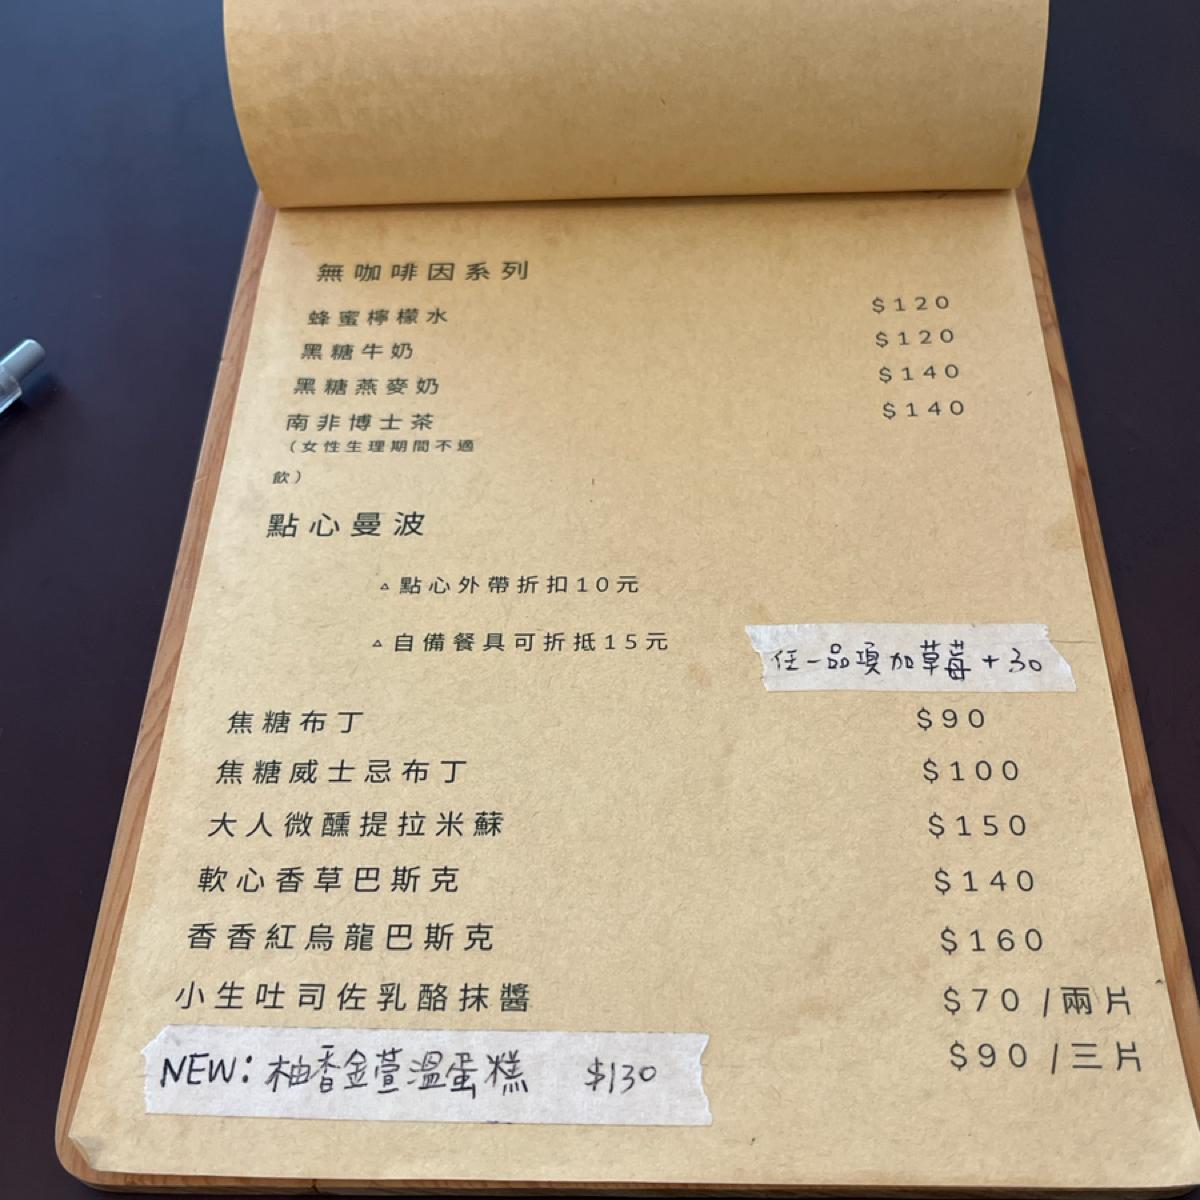 無咖啡因系列
蜂蜜檸檬水 $120
黑糖牛奶 $120
黑糖燕麥奶 $140
南非博士茶 $140
（女性生理期間不適
飲）
點心曼波
▵點心外帶折扣10元
▵自備餐具可折抵15元
任一品項加草莓+30
焦糖布丁 $90
焦糖威士忌布丁 $100
大人微醺提拉米蘇 $150
軟心香草巴斯克 $140
香香紅烏龍巴斯克 $160
小生吐司佐乳酪抹醬 $70 /兩片
$90 /三片
NEW: 柚香金萱溫蛋糕 $130